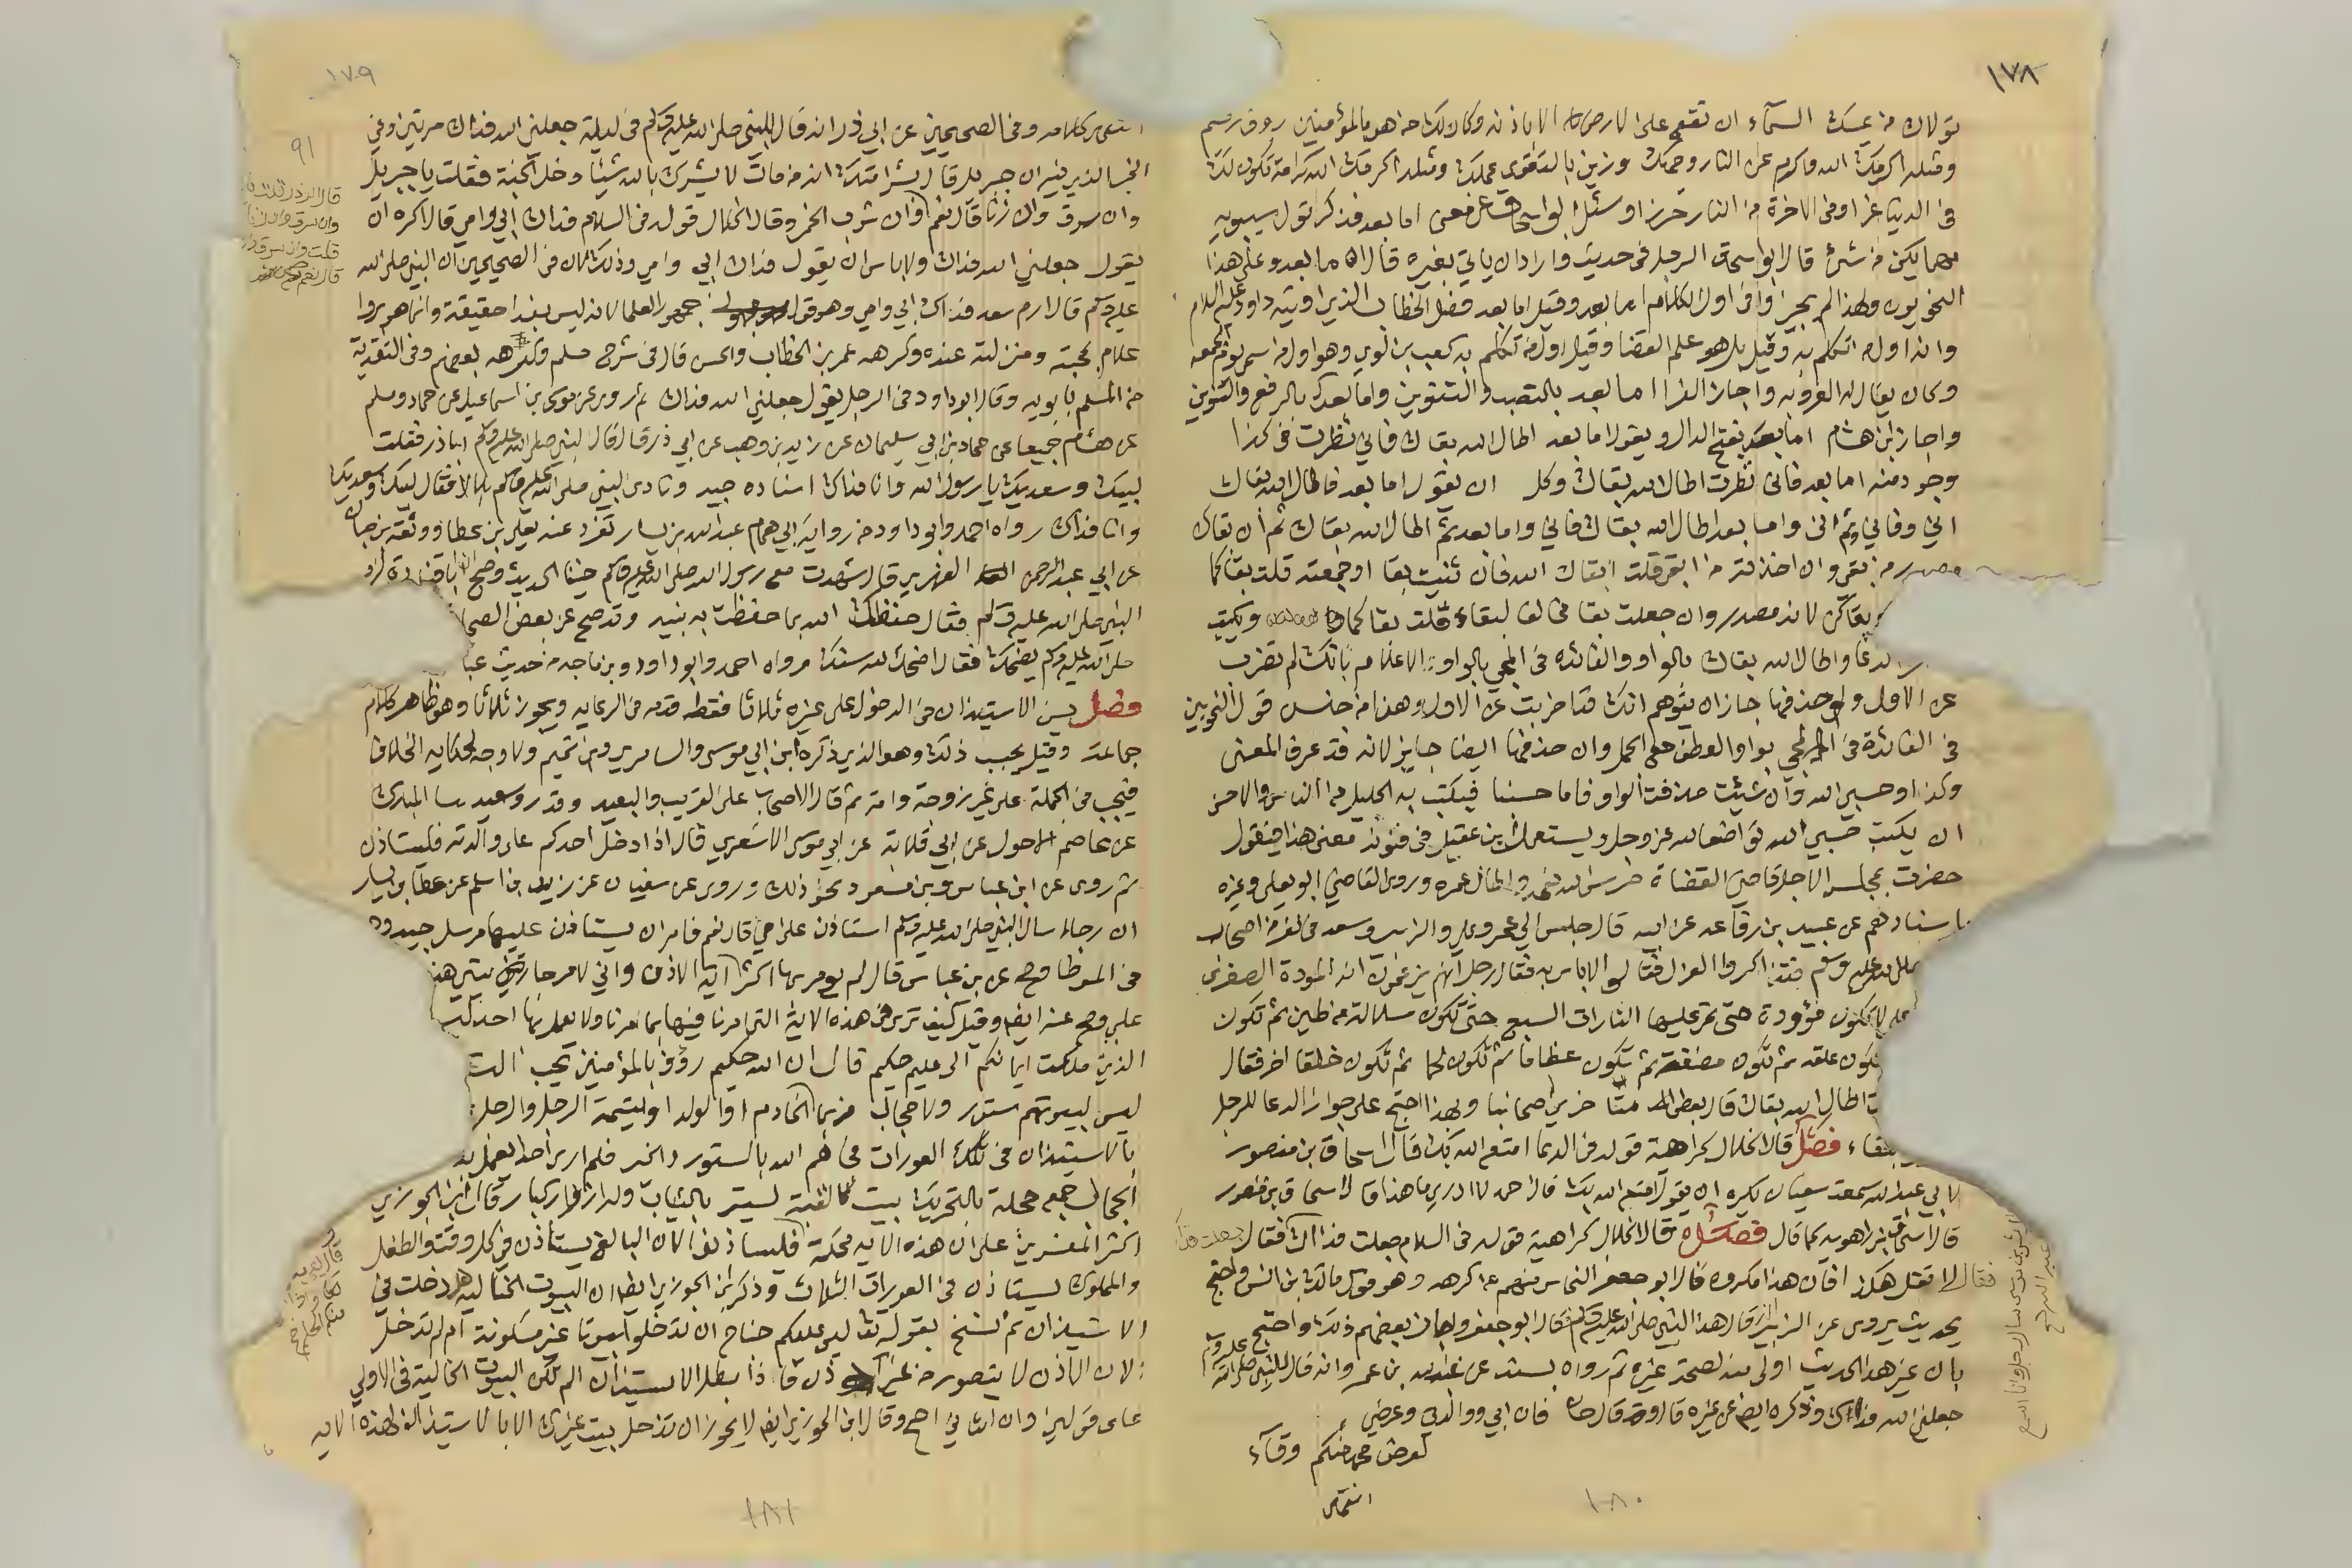 ١٧٨
تولاك من يمسك السماء ان تقع على الارض الا باذنه وكان لك من هو بالمؤمنين رؤف رحيم
وقيله اكرمك الله واكرم عن النار وجهك وزين بالتقوى عملك ومثله اكرمك الله كرامة تكون لك
في الدنيا عزا وفي الاخرة من النار حرزا وسئل ابو اسحاق عن معنى اما بعد فذكر قول سيبويه
مهما يكن من شئ قال ابو اسحاق الرجل في حديث واراد ان ياتي بغيره قال اما بعد وعلى هذا
النحويون ولهذا لم يجيزوا في اول الكلام اما بعد وقيل اما بعد فصل الخطاب الذي اوتيه داود عليه السلام
وانه اول من تكلم به وقيل بل هو علم القضا وقيل اول من تكلم به كعب بن لوي وهو اول من سمى يوم الجمعة
وكان يقال له العروبة واجاز الفرا اما بعد بالنصب والتنوين واما بعد بالرفع والتنوين
واجاز ابن هشام اما بعد بفتح الدال ويقول اما بعد اطال الله بقاك فاني نظرت في كذا
وجود منه اما بعد فاني نظرت اطال الله بقاك وكل ان يقول اما بعد فاطال الله بقاك
اني وفاني ثم اني واما بعد اطال الله بقاك فاني واما بعد ثم اطال الله بقاك ثم ان بقاك
مصدر من بقي وان اخذته من ابقى قلت ابقاك الله فان ثنيت بقا او جمعته قلت بقاكما
بقاكن لانه مصدر وان جعلت بقا مخالفا لبقاء قلت بقاكما ويكتب
الدعا واطال الله بقاك بالواو والفائده في المجي بالواو الاعلام بانك لم تضرب
عن الاول ولو حذفها جاز ان يتوهم انك قد اضربت عن الاول وهذا من جنس قول النحويين
في الفائدة في المجي بواو العطف على الجمل وان حذفها ايضا جايز لانه قد عرف المعنى
وكذا وحسبي الله وان شئت حذفت الواو فاما حسبنا فيكتب به الجليل من الناس والاحسن
ان يكتب حسبي الله تواضعا لله عز وجل ويستعمل ابن عقيل في فنونه معنى هذا فيقول
حضرت بمجلس الاجل قاضي القضاة حرس الله نعمه واطال عمره وروى القاضي ابو يعلى وغيره
باسنادهم عن عبيد بن رفاعه عن ابيه قال جلس الي عمر وعلي والزبير وسعد في نفر من اصحاب
صلى الله عليه وسلم فتذاكروا العزل فقالوا لا باس به فقال رجل انهم يزعمون انه المودة الصغرى
علي لا تكون موؤدة حتى تمر عليها التارات السبع حتى تكون سلالة من طين ثم تكون
تكون علقه ثم تكون مضغة ثم تكون عظاما ثم تكون لحما ثم تكون خلقا اخر فقال
اطال الله بقاك وبهذا احتج على جواز الدعا للرجل
بالبقاء فصل قال الخلال كراهية قوله في الدعا امتع الله بك قال اسحاق بن منصور
لابي عبد الله سمعت سفيان يكره ان يقول امتع الله بك قال احمد لا ادري ما هذا قال اسحاق بن منصور
قال اسحاق بن راهويه كما قال فصل قال الخلال كراهية قوله في السلام جعلت فداك فقال
فقال لا تقل هكذا فان هذا مكروه قال ابو جعفر النحاس منهم من كرهه وهو قول مالك بن انس واحتج
بحديث يروى عن الزبير قال هذا للنبي صلى الله عليه وسلم قال ابو جعفر واجاز بعضهم ذلك واحتج
بان غير هذا الحديث اولى منه لصحة غيره ثم رواه بسند عن عبد الله بن عمر وانه قال للنبي صلى الله عليه وسلم
جعلني الله فداك وذكره ايضا عن غيره قالوا وقد قال حسان فان ابي ووالدتي وعرضي
لعرض محمد منكم وقاء
انتهى
١٨٠
١٧٩
٩١
انتهى كلامه وفي الصحيحين عن ابي ذر انه قال للنبي صلى الله عليه وسلم في ليلة جعلني الله فداك مرتين وفي
الخبر الذي فيه ان جبريل قال بشر امتك انه من مات لا يشرك بالله شيئا دخل الجنة فقلت يا جبريل
وان سرق وان زنا قال نعم وان شرب الخمر وقال الخلال قوله في السلام فداك ابي وامي قال اكره ان
يقول جعلني الله فداك ولا باس ان يقول فداك ابي وامي وذلك لان في الصحيحين ان النبي صلى الله
عليه وسلم قال ارم سعد فداك ابي وامي وهو قول جمهور العلما لانه ليس بفدا حقيقة وانما هو بر وا
علام بمحبته ومنزلته عنده وكرهه عمر بن الخطاب والحسن قال في شرح مسلم وكرهه بعضهم وفي التفدية
من المسلم بابويه وقال ابو داود في الرجل يقول جعلني الله فداك ثم روى عن موسى بن اسماعيل عن حماد ومسلم
عن هشام جميعا عن حماد بن ابي سليمان عن زيد بن وهب عن ابي ذر قال قال النبي صلى الله عليه وسلم اباذر فقلت
لبيك وسعديك يا رسول الله وانا فداك اسناده جيد ونادى النبي صلى الله عليه وسلم بلالا فقال لبيك وسعديك
وانا فداك رواه احمد وابو داود من رواية ابي همام عبد الله بن يسار تفرد عنه يعلى بن عطا ووثقه بن حبان
عن ابي عبد الرحمن الفهري قال شهدت مع رسول الله صلى الله عليه وسلم حنينا الحديث وصح ان ابا قتادة
النبي صلى الله عليه وسلم فقال حفظك الله بما حفظت به نبيه وقد صح عن بعض الصحا
صلى الله عليه وسلم يضحك فقال اضحك الله سنك رواه احمد وابو داود وبن ماجه من حديث عبا
فصل يسن الاستيذان في الدخول على غيره ثلاثا فقط قدمه في الرعايه ويجوز ثلاثا وهو ظاهر كلام
جماعة وقيل يجب ذلك وهو الذي ذكره ابن ابي موسى والسامري وبن تميم ولا وجه لحكايه الخلاف
فيجب في الجملة على غير زوجة وامة ثم قال الاصحاب على القريب والبعيد وقد روى سعيد بنا المبارك
عن عاصم الاحول عن ابي قلابة عن ابي موسى الاشعري قال اذا دخل احدكم على والدته فليستاذن
ثم روى عن ابن عباس وبن مسعود نحو ذلك وروى عن سفيان عن زيد بن اسلم عن عطا بن يسار
ان رجلا سال النبي صلى الله عليه وسلم استاذن على امي قال نعم فامر ان يستاذن عليها مرسل جيد وهو
في الموطا وصح عن بن عباس قال لم يؤمن بها اكثر اية الاذن واني لامر جاريتي هذه
علي وصح عنه ايضا وقيل كيف ترى في هذه الاية التي امرنا فيها بما امرنا ولا يعمل بها احد
الذين ملكت ايمانكم الى عليم حكيم قال ان الله حكيم رؤف بالمؤمنين يحب الست
ليس لبيوتهم ستور ولا حجال فربما الخادم او الولد او اليتيمة الرجل والرجل
بالاستيذان في تلك العورات فجاهم الله بالستور والخير فلم ار احدا يعمل بذ
الحجال جمع حجلة بالتحريك بيت كالقبة يستر بالثياب وله ازرار كبار قال ابن الجوزي
اكثر المفسرين على ان هذه الايه محكمة فليستاذنوا لان البالغ يستاذن في كل وقت والطفل
والمملوك يستاذن في العورات الثلاث وذكر ابن الجوزي ايضا ان البيوت الخاليه هل دخلت في
الاستيذان ثم نسخ بقوله تعالى ليس عليكم جناح ان تدخلوا بيوتا غير مسكونة ام لم تدخل
لان الاذن لا يتصور من غير اذن فاذا بطل الاستيذان لم تكن البيوت الخالية في الاولى
على قولين وان الثاني اصح وقال ابن الجوزي ايضا لا يجوز ان تدخل بيت غيرك الا بالاستيذان لهذه الايه
١٨١